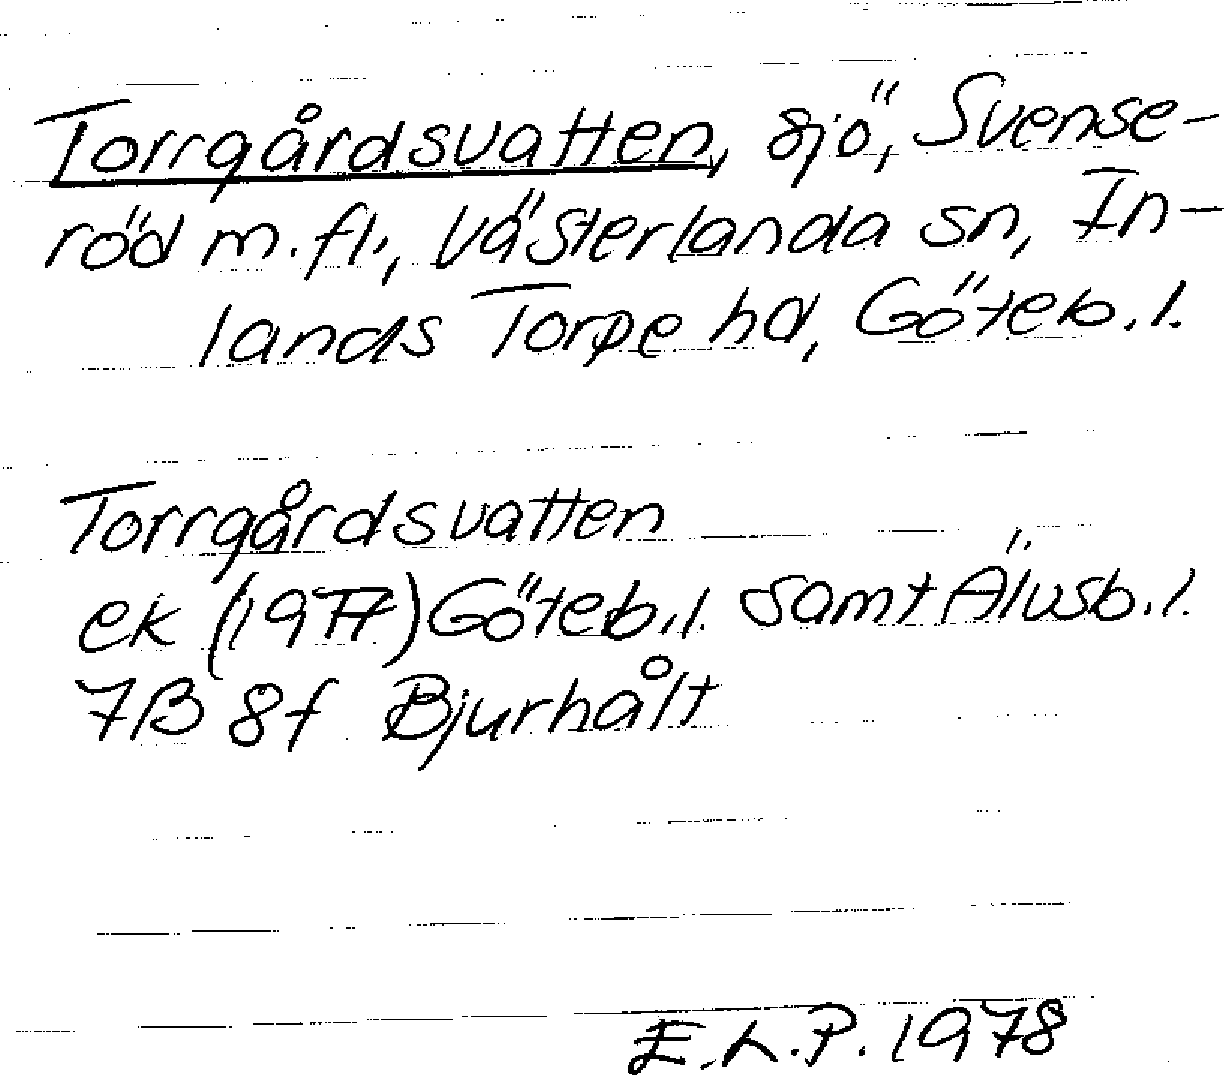 Torrgårdsvatten, sjö, Svense-
röd m.fl., Västerlanda sn, In-
lands Torpe hd, Göteb.l.
Torrgårdsvatten
ek (1977) Göteb.l. samt Älvsb.l.
7B 8f Bjurhålt
E.L.P. 1978